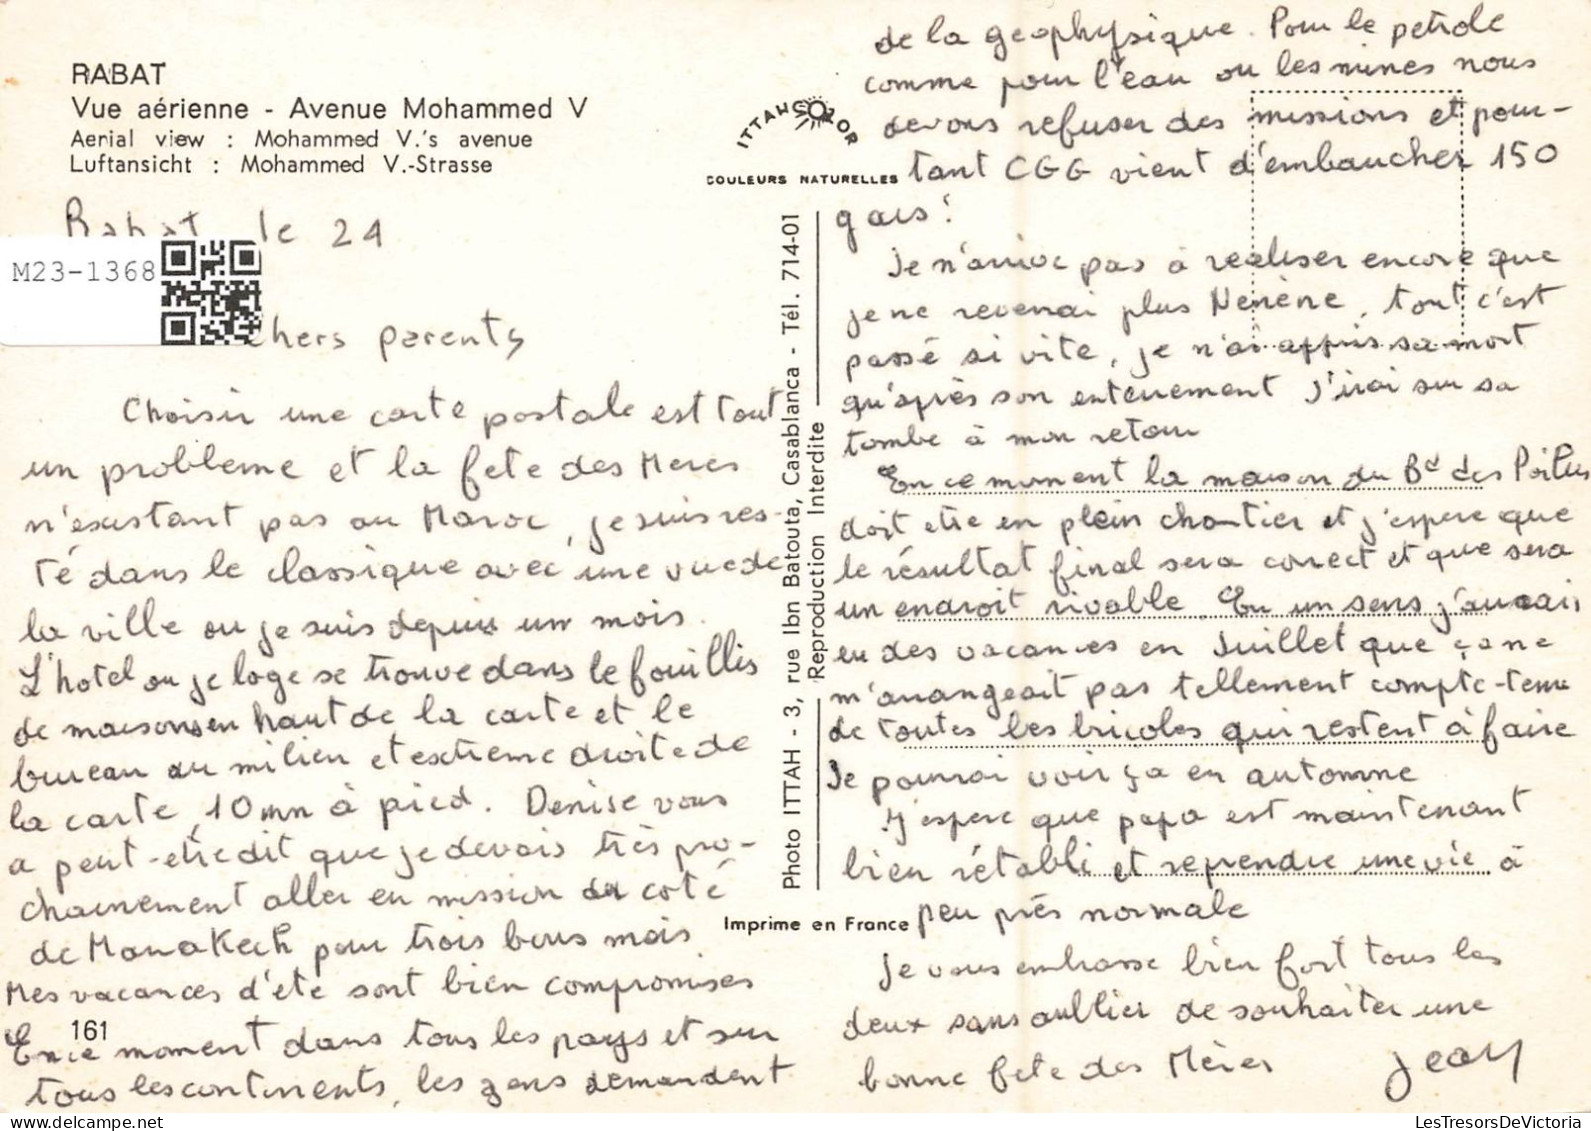 RABAT
Vue aérienne - Avenue Mohammed V
Aerial view : Mohammed V.'s avenue
Luftansicht : Mohammed V.-Strasse
Rabat le 24
M23-1368
chers parents
Choisir une carte postale est tout
un probleme et la fete des Meres
n'existant pas au Maroc, je suis res-
té dans le classique avec une vue de
la ville ou je suis depuis un mois.
L'hotel ou je loge se trouve dans le fouillis
de maisons en haut de la carte et le
bureau au milieu et extreme droite de
la carte, 10 mn à pied. Denise vous
a peut-etre dit que je devais très pro-
chainement aller en mission du coté
de Marrakech pour trois bons mois
Mes vacances d'été sont bien compromises
161
En ce moment dans tous les pays et sur
tous les continents, les gens demandent
ITTAH COLOR
COULEURS NATURELLES
Photo ITTAH - 3, rue Ibn Batouta, Casablanca - Tél. 714-01
Reproduction Interdite
Imprime en France
de la geophysique. Pour le petrole
comme pour l'eau ou les mines nous
devons refuser des missions et pour-
tant CGG vient d'embaucher 150
gars!
Je n'arrive pas à realiser encore que
je ne reverrai plus Nenène, tout c'est
passé si vite, je n'ai appris sa mort
qu'après son enterrement J'irai sur sa
tombe à mon retour
En ce moment la maison du Bd des Poilus
doit etre en plein chantier et j'espere que
le résultat final sera correct et que sera
un endroit vivable. En un sens j'aurais
eu des vacances en Juillet que ça ne
m'arrangeait pas tellement compte-tenu
de toutes les bricoles qui restent à faire
Je pourrai voir ça en automne
J'espere que papa est maintenant
bien rétabli et reprendre une vie à
peu près normale
Je vous embrasse bien fort tous les
deux sans oublier de souhaiter une
bonne fete des Mères Jean
LesTresorsDeVictoria